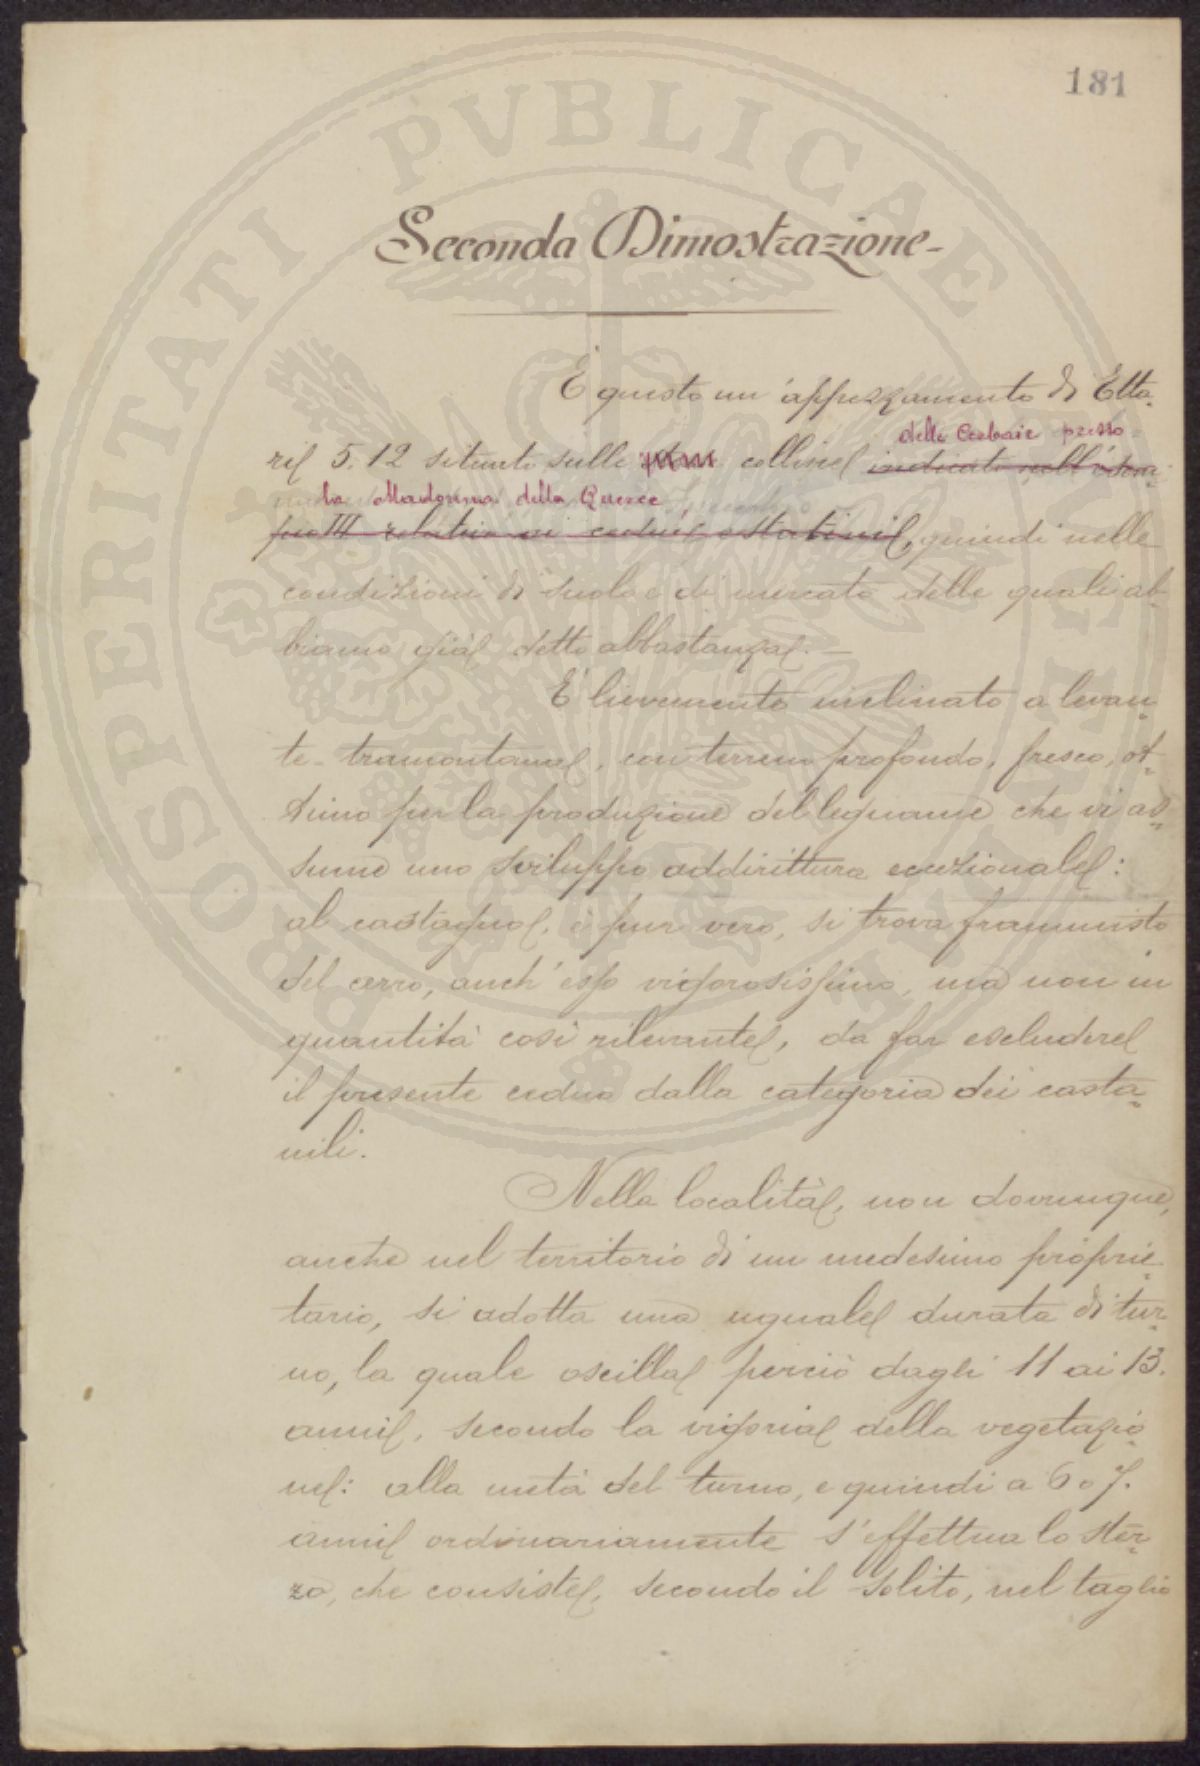 181
PROSPERITATI PVBLICAE AVGENDAE
Seconda Dimostrazione-
È questo un' appezzamento di Etta-
ri 5.12 situato sulle colline indicate nell'esem-
delle Cerbaie presso
la Madonna della Querce,
pio III relativo ai cedui castanili, quindi nelle
condizioni di suolo e di mercato delle quali ab-
biamo già detto abbastanza. —
È lievemente inclinato a levan-
te-tramontana, con terreno profondo, fresco, ot-
timo per la produzione del legname che vi as-
sume uno sviluppo addirittura eccezionale:
al castagno, è pur vero, si trova frammisto
del cerro, anch'esso vigorosissimo, ma non in
quantità così rilevante, da far escludere
il presente ceduo dalla categoria dei casta-
nili.
Nella località, non dovunque,
anche nel territorio di un medesimo proprie-
tario, si adotta una uguale durata di tur-
no, la quale oscilla perciò dagli 11 ai 13.
anni, secondo la vigoria della vegetazio-
ne: alla metà del turno, e quindi a 6 o 7.
anni ordinariamente s'effettua lo ster-
zo, che consiste, secondo il solito, nel taglio